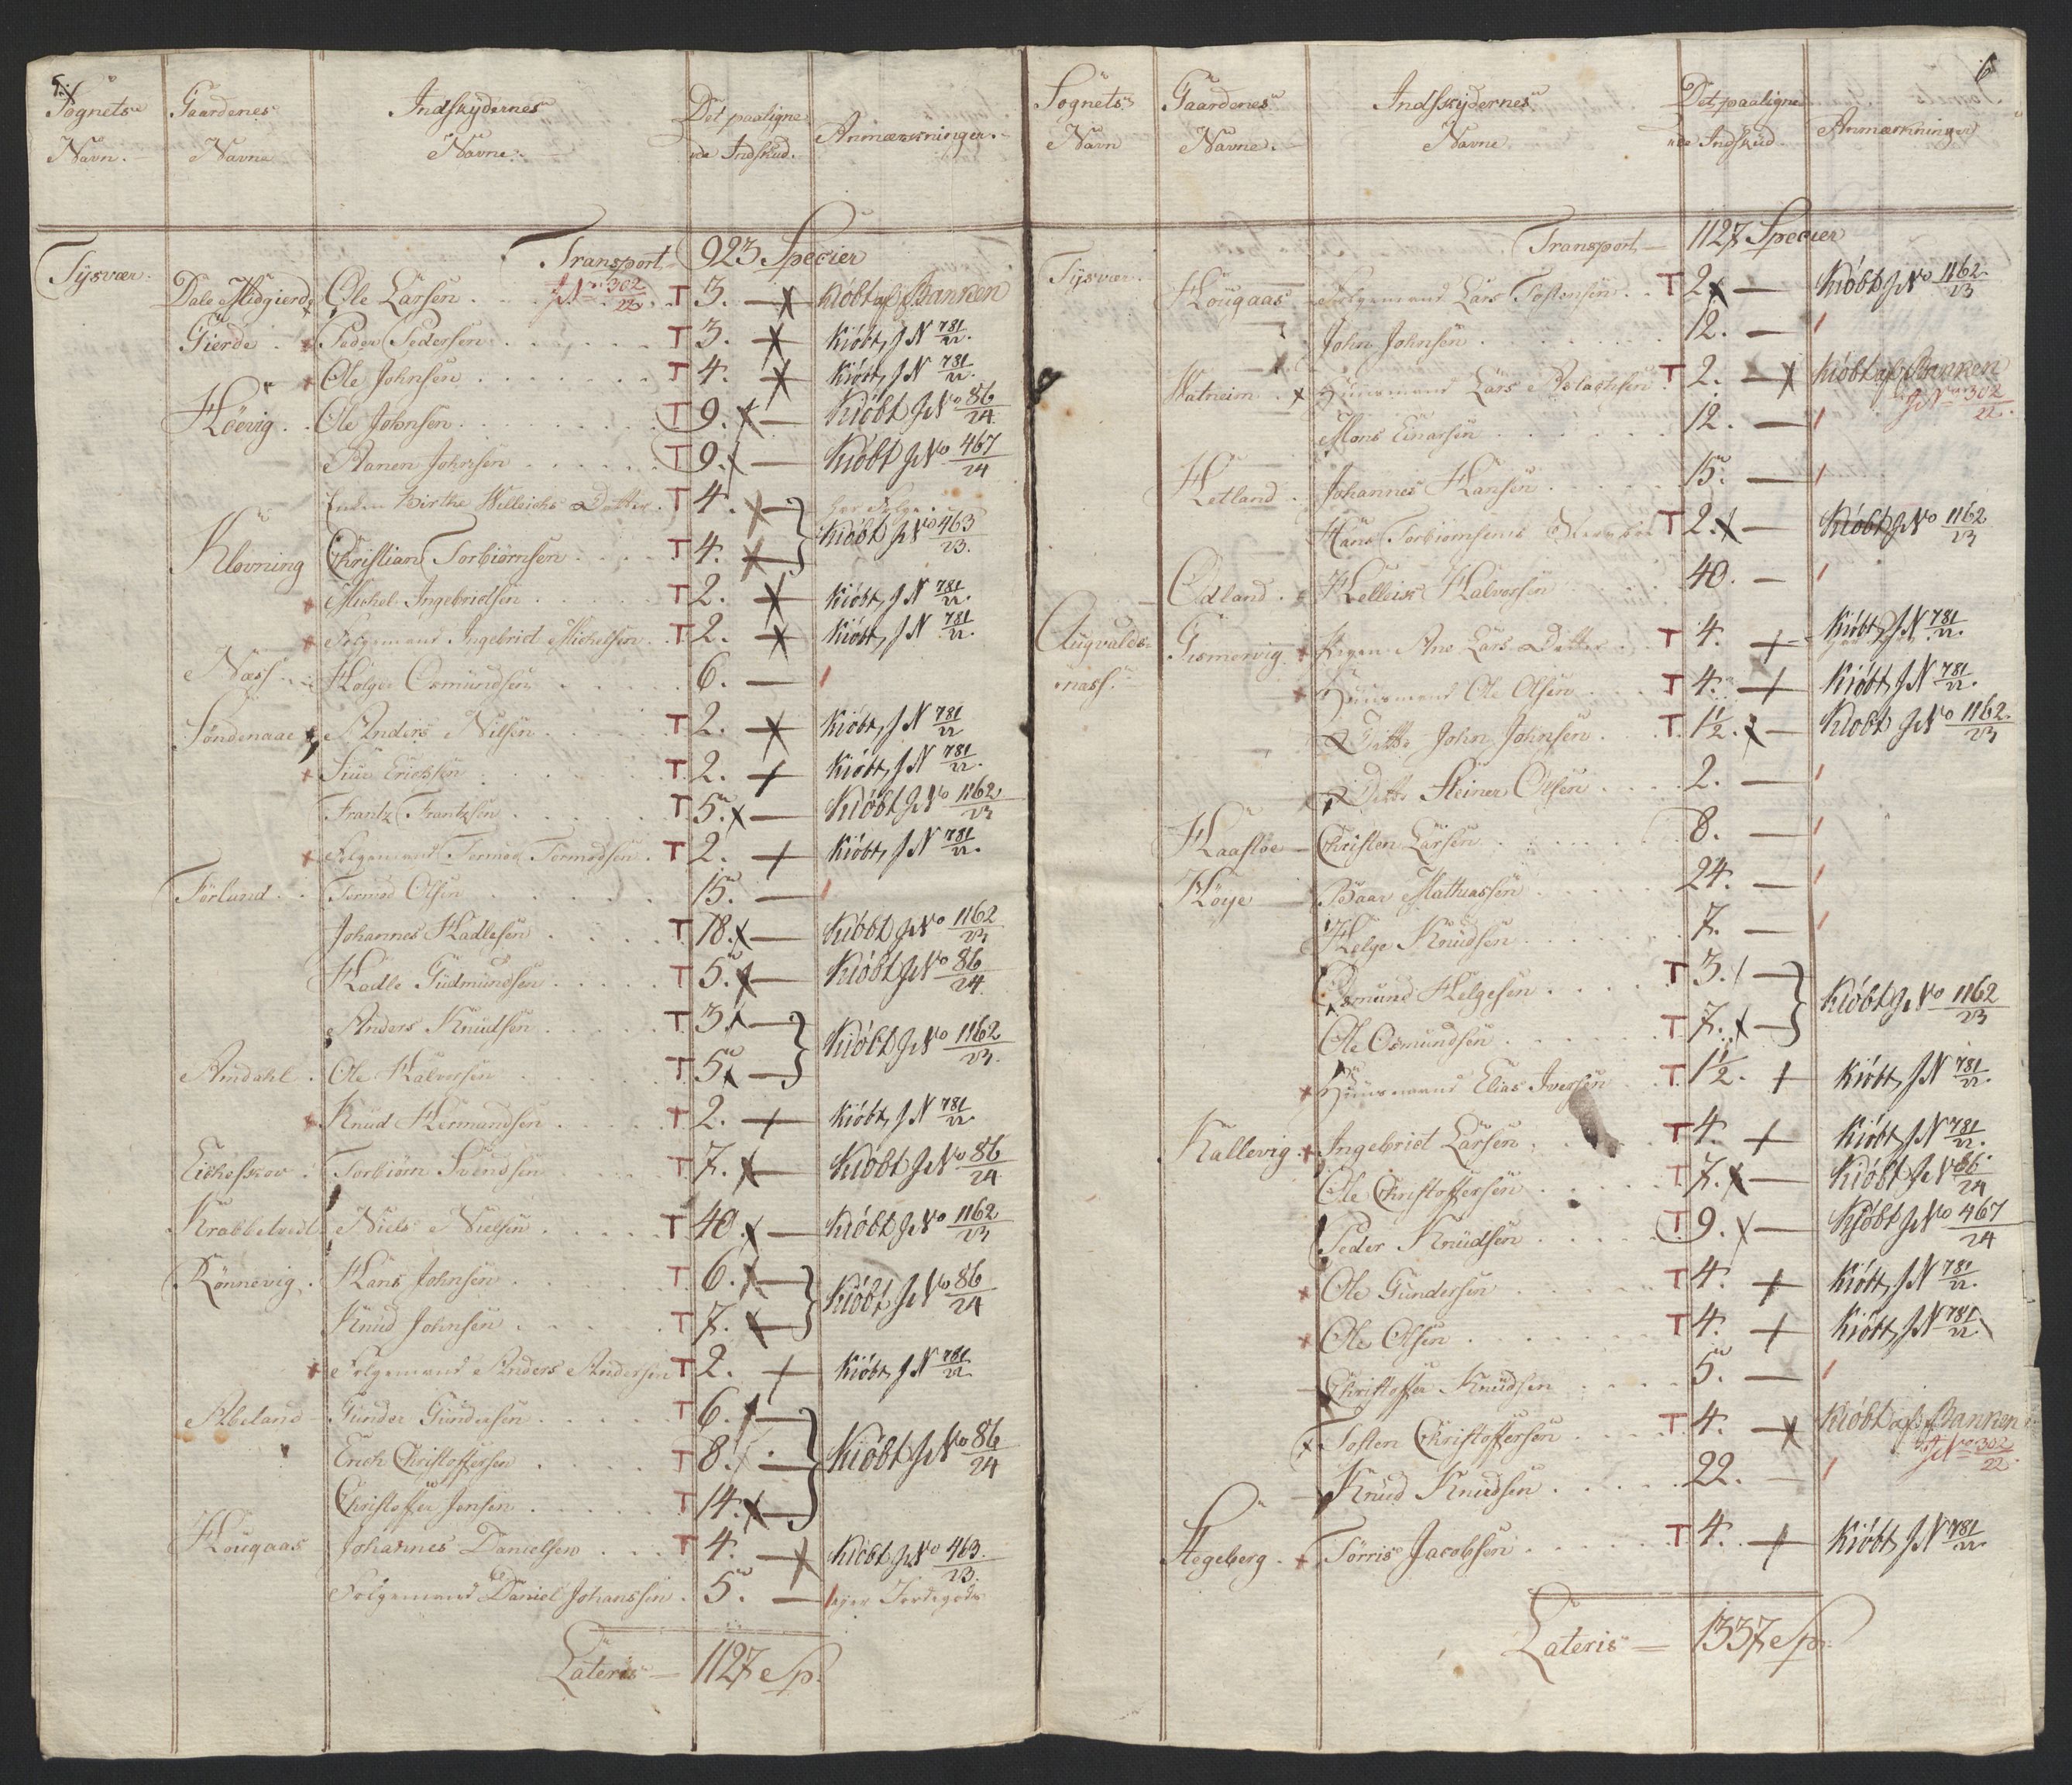 5.
Sognets Navn. Gaardenes Navne Indskydernes Navne. Det paaligne de Indskud. Anmærkninger.
Transport 923 Specier
Tysvær. Dale Midgierde Ole Larsen . . JN 302/22 T 3. — Kiöbt af Banken
Gierde . Peder Pedersen . . . T 3. — Kiöbt, J N 781/22.
Ole Johnsen . . . T 4. — Kiöbt, J N 781/22.
Höevig . . Ole Johnsen . . . T 9. — Kiöbt JNo 86/24
Aanen Johnsen . . . T 9. — Kiöbt JNo 467/24
Enken Birthe Datter . T 4. —
Klovning Christian Torbiörnsen . . . T 4. — Kiöbt JNo 463/23.
Michel Ingebrictsen . . . T 2. — Kiöbt, J N 781/22.
Folgemand Ingebrict Michelsen . . T 2. — Kiöbt, J N 781/22.
Næss . . Holger Osmundsen . . . 6. —
Söndenaae Anders Nilsen . . . T 2. — Kiöbt, J N 781/22
Siur Erichsen . . . T 2. — Kiöbt, J N 781/22.
Frantz Frantzsen . . . T 5. — Kiöbt JNo 1162/23
Folgemand Tormod Tormodsen . T 2. — Kiöbt, J N 781/22.
Förland . . Tormod Olsen . . . 15. —
Johannes Hadlesen . . . T 18. — Kiöbt JNo 1162/23
Hadle Gudmundsen . . . T 5. — Kiöbt JNo 86/24.
Anders Knudsen . . . T 3. —
Amdahl . Ole Halvorsen . . . T 5. — Kiöbt JNo 1162/23.
Knud Hermandsen . . . T 2. — Kiöbt, J N 781/22.
Eickeskov . Torbiörn Svendsen . . . T 7. — Kiöbt JNo 86/24
Krabbetvedt Niels Nielsen . . . T 40. — Kiöbt JNo 1162/23
Rönnevig . Hans Johnsen . . . T 6. —
Knud Johnsen . . . T 7. — Kiöbt JNo 86/24
Folgemand Anders Andersen T 2. — Kiöbt, J N 781/22
Abeland Gunder Gundersen . . . T 6. —
Erich Christoffersen . . . T 8. — Kiöbt JNo 86/24
Christoffer Jensen . . . T 14. —
Hougaas Johannes Danielsen . . . T 4. — Kiöbt JNo 463/23.
Folgemand Daniel Johanssen . 5. — ejer Jordegods
Lateris — 1127 Sp.
6
Sognets Navn Gaardenes Navne. Indskydernes Navne Det paaligne de Indskud. Anmærkninger
Transport — 1127 Specier
Tysvær. Hougaas Folgemand Lars Tostensen . . T 2. — Kiöbt JNo 1162/23
John Johnsen . . . 12. —
Watneim . Huusmand Lars Aslachsen . T 2. — Kiöbt af Banken
JNo 302/22.
Mons Einarsen . . . 12. —
Hetland . Johannes Hansen . . . 15. —
Hans Torbiörnsens T 2. — Kiöbt JNo 1162/23
Odland . Helleik Halvorsen . . . 40. —
Augvaldsnæss. Gismervig Pigen Ane Lars Datter . . T 4. — Kiöbt, J N 781/22.
Huusmand Ole Olsen . . . T 4. — Kiöbt, J N 781/22.
Ditto John Johnsen . . . T 1½. — Kiöbt JNo 1162/23
Ditto Steiner Olsen . . . 2. —
Haaslöe — Christen Larsen . . . 8. —
Höye — Baar Mathiassen . . . 24. —
Helge Knudsen . . . 7. —
Osmund Helgesen . . . T 3. —
Ole Osmundsen . . . T 7. — Kiöbt JNo 1162/23
Huusmand Elias Iversen . . T 1½. — Kiöbt, J N 781/22.
Kallevig . Ingebrict Larsen . . . T 4. — Kiöbt, J N 781/22.
Ole Christoffersen . . . T 7. — Kiöbt JNo 86/24
Peder Knudsen . . . T 9. — Kiöbt JNo 467/24
Ole Gundersen . . . T 4. — Kiöbt, J N 781/22.
Ole Olsen . . . T 4. — Kiöbt, J N 781/22
Christoffer Knudsen . . . 5. —
Tosten Christoffersen . . . T 4. — Kiöbt af Banken
JNo 302/22.
Knud Knudsen . . . 22. —
Stegeberg . Törris Jacobsen . . . T 4. — Kiöbt, J N 781/22.
Lateris — 1337 Sp.